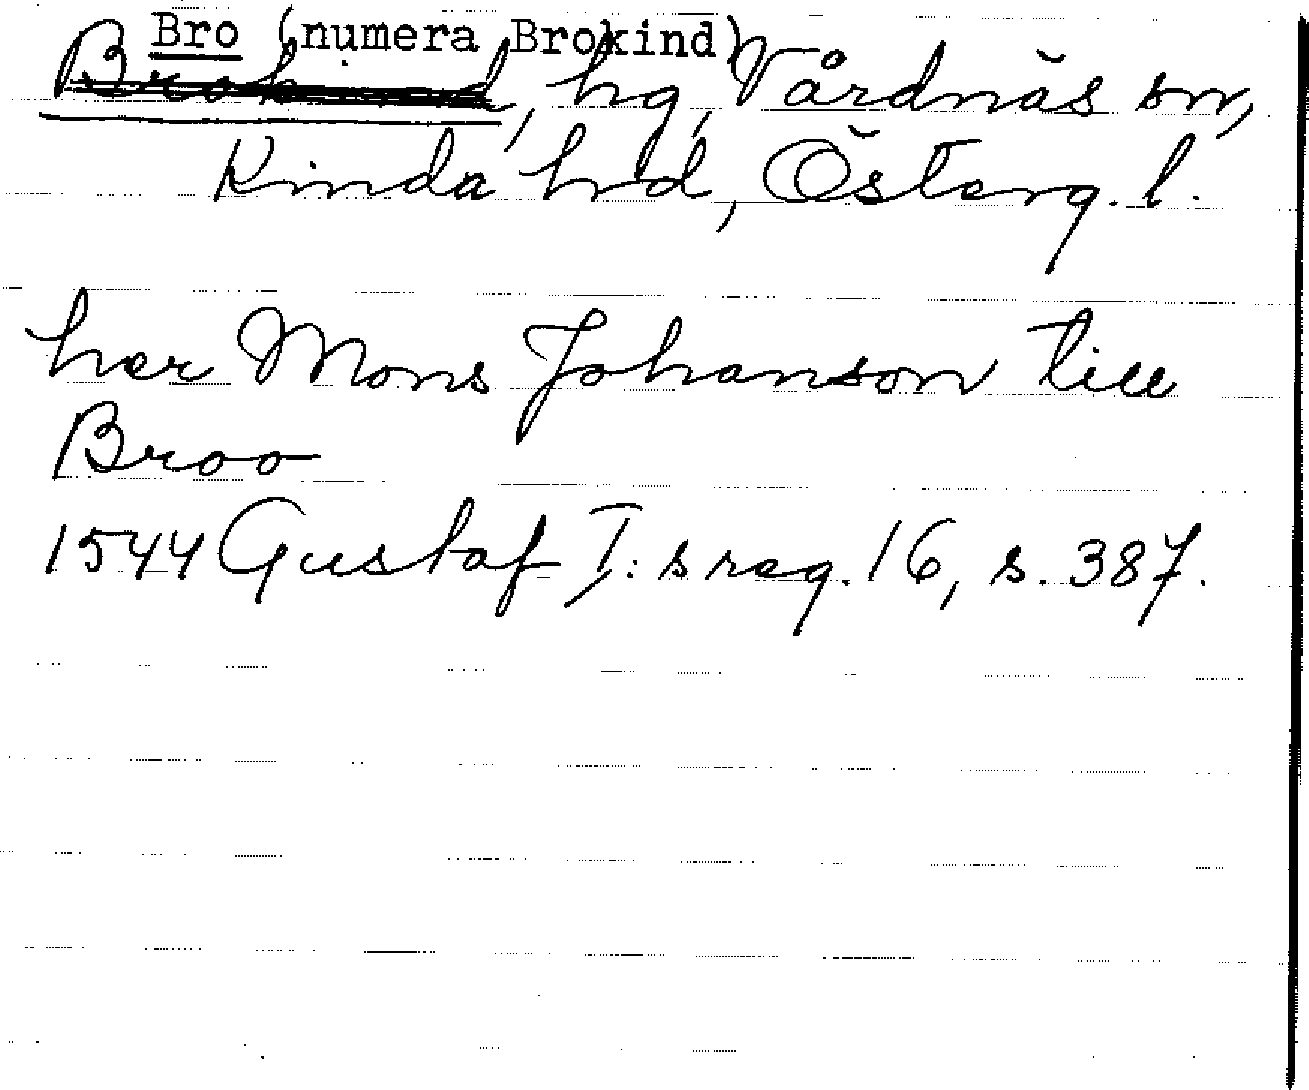 Bro (numera Brokind)
Brokind, hg, Vårdnäs sn,
Kinda hrd, Österg. l.
her Mons Johanson till
Broo
1544 Gustaf I:s reg. 16, s. 387.